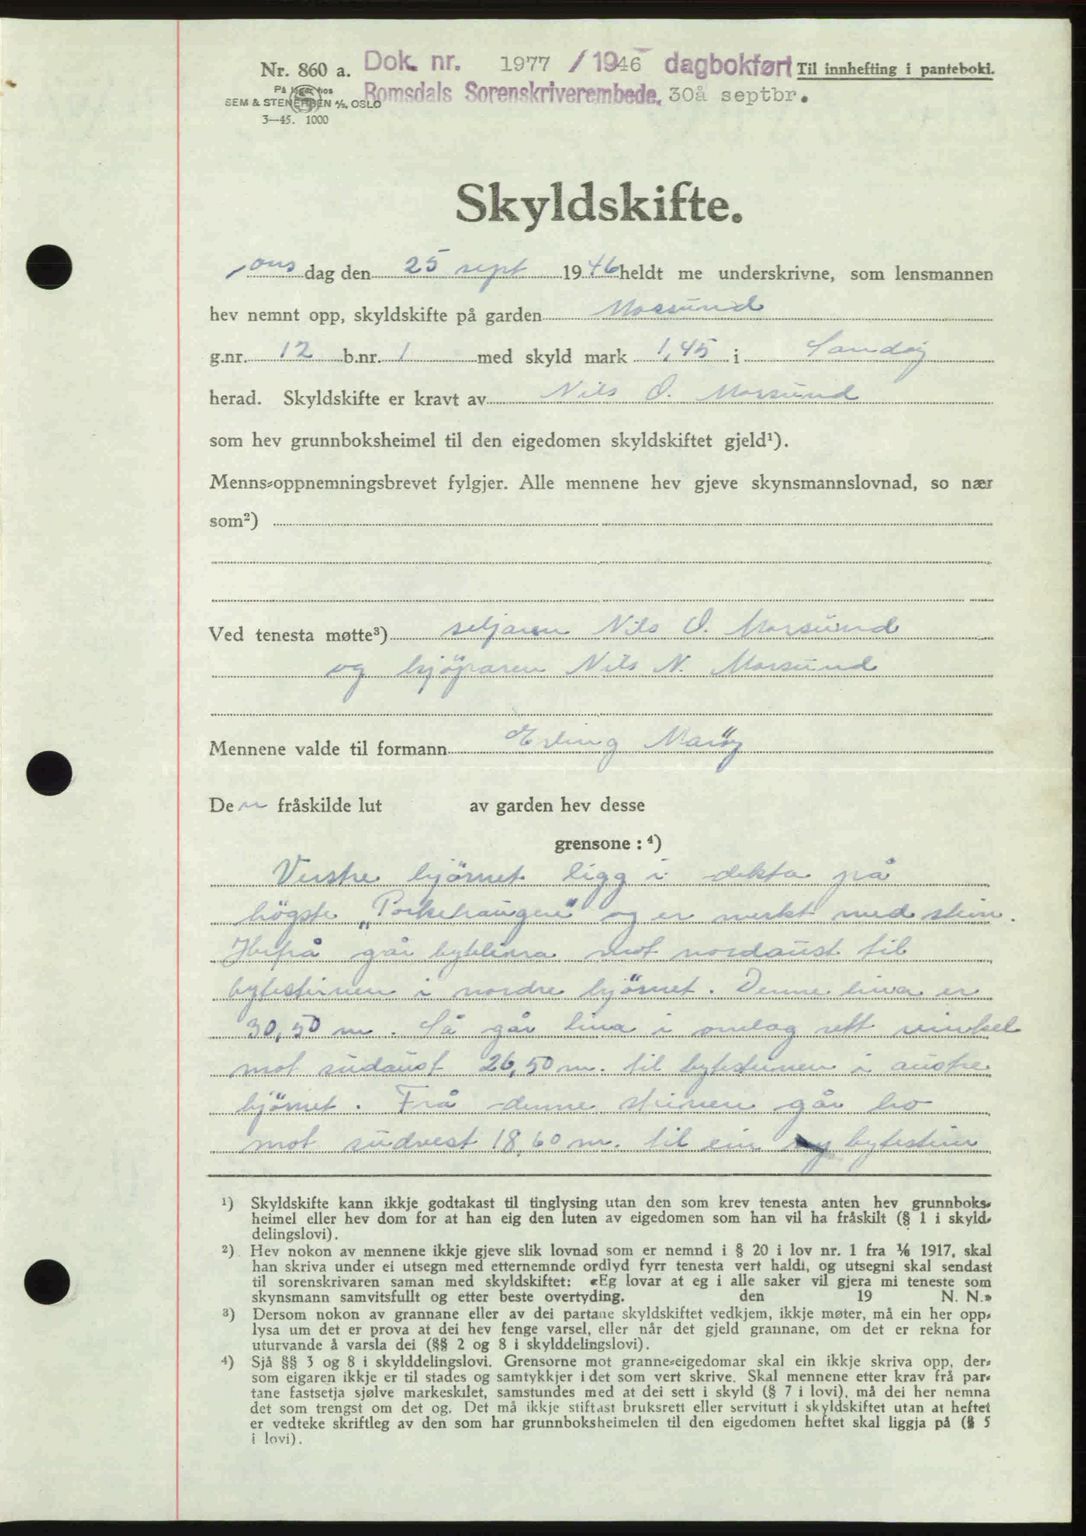 Nr. 860 a. Dok. nr. 1977 / 1946 dagbokført Til innhefting i panteboki.
På lager hos
SEM & STENERSEN A/S, OSLO Romsdals Sorenskriverembede, 30å septbr.
3—45. 1000
Skyldskifte.
ons dag den 25 sept 1946 heldt me underskrivne, som lensmannen
hev nemnt opp, skyldskifte på garden Morsund
g.nr. 12 b.nr. 1 med skyld mark 1,45 i Sandøy
herad. Skyldskifte er kravt av Nils O. Morsund
som hev grunnboksheimel til den eigedomen skyldskiftet gjeld¹).
Menns-oppnemningsbrevet fylgjer. Alle mennene hev gjeve skynsmannslovnad, so nær
som²)
Ved tenesta møtte³) seljaren Nils O. Morsund
og kjöparen Nils N. Morsund
Mennene valde til formann Erling Maröy
De n fråskilde lut av garden hev desse
grensone : ⁴)
Vestre hjörnet ligg i dekta på
högste og er merkt med stein.
Herfrå går bytelinna mot nordaust til
bytesteinen i nordre hjörnet. Denne lina er
30,50 m. Så går lina i omlag rett vinkel
mot südaust 26,50 m. til bytesteinen i austre
hjörnet. Frå denne steinen går ho
mot südvest 18,60 m. til ein ny bytestein
¹) Skyldskifte kann ikkje godtakast til tinglysing utan den som krev tenesta anten hev grunnboks-
heimel eller hev dom for at han eig den luten av eigedomen som han vil ha fråskilt (§ 1 i skyld-
delingslovi).
²) Hev nokon av mennene ikkje gjeve slik lovnad som er nemnd i § 20 i lov nr. 1 fra 1/6 1917, skal
han skriva under ei utsegn med etternemnde ordlyd fyrr tenesta vert haldi, og utsegni skal sendast
til sorenskrivaren saman med skyldskiftet: «Eg lovar at eg i alle saker vil gjera mi teneste som
skynsmann samvitsfullt og etter beste overtyding. den 19 N. N.»
³) Dersom nokon av grannane eller av dei partane skyldskiftet vedkjem, ikkje møter, må ein her opp-
lysa um det er prova at dei hev fenge varsel, eller når det gjeld grannane, om det er rekna for
uturvande å varsla dei (§§ 2 og 8 i skylddelingslovi).
⁴) Sjå §§ 3 og 8 i skylddelingslovi. Grensorne mot granne-eigedomar skal ein ikkje skriva opp, der-
som eigaren ikkje er til stades og samtykkjer i det som vert skrive. Skal mennene etter krav frå par-
tane fastsetja sjølve markeskilet, samstundes med at dei sett i skyld (§ 7 i lovi), må dei her nemna
det som trengst om det og. Det må ikkje stiftast bruksrett eller servitutt i skyldskiftet utan at heftet
er vedteke skriftleg av den som har grunnboksheimelen til den eigedomen heftet skal liggja på (§ 5
i lovi).